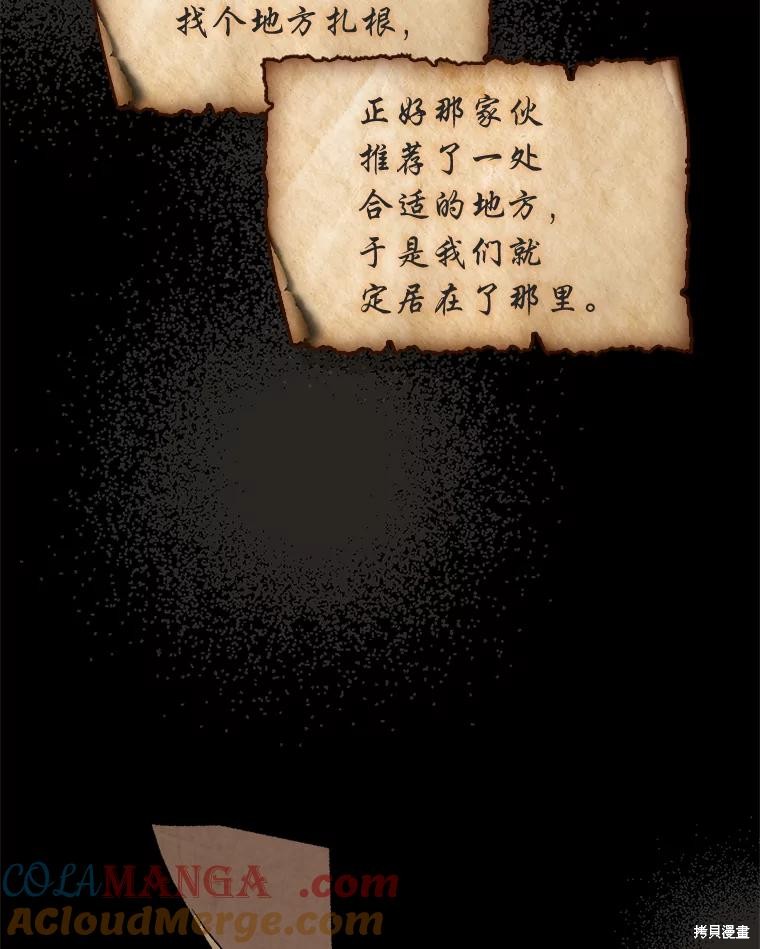 找个地方扎根，
正好那家伙
推荐了一处
合适的地方，
于是我们就
定居在了那里。
COLAMANGA.com
ACloudMerge.com
拷貝漫畫